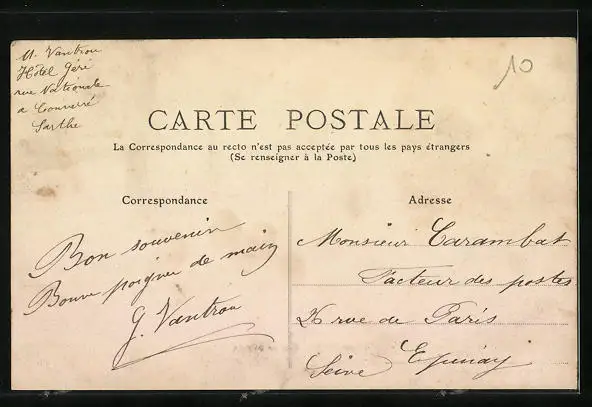 M. Vantrou
Hôtel Géré
rue Nationale
a Connerré
Sarthe
10
CARTE POSTALE
La Correspondance au recto n'est pas acceptée par tous les pays étrangers
(Se renseigner à la Poste)
Correspondance
Adresse
Bon souvenir
Bonne poignée de main
G. Vantrou
Monsieur Carambat
Facteur des postes
rue de Paris
Epinay
Seine